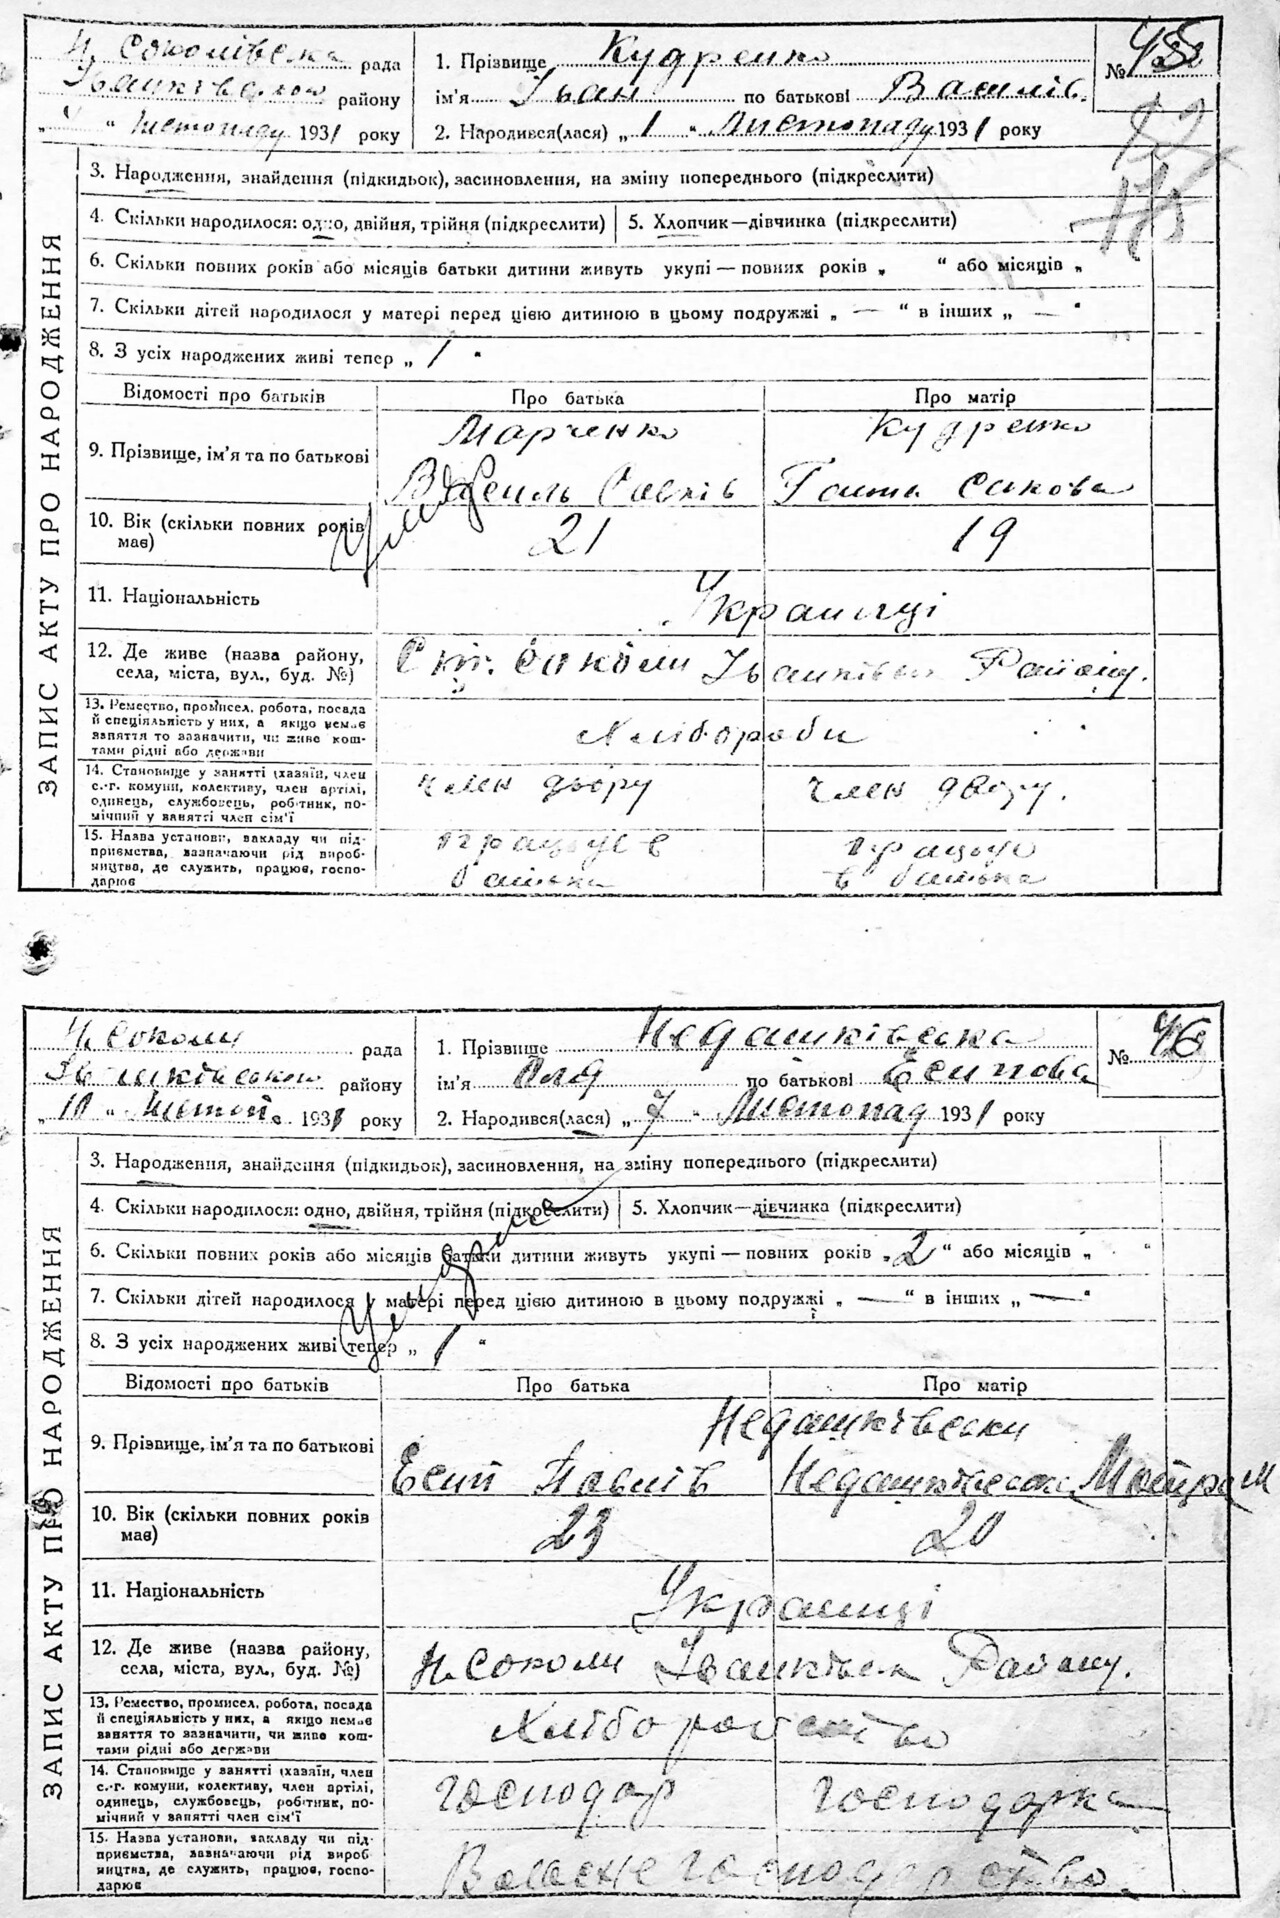 Н. Соколівська рада
Іванківського району
„ “ Листопаду 1931 року
1. Прізвище Кудренко
ім'я Іван по батькові Василів.
2. Народився(лася) „ 1 “ Листопаду 1931 року
№ 45
ЗАПИС АКТУ ПРО НАРОДЖЕННЯ
3. Народження, знайдення (підкидьок), засиновлення, на зміну попереднього (підкреслити)
4. Скільки народилося: одно, двійня, трійня (підкреслити)
5. Хлопчик—дівчинка (підкреслити)
6. Скільки повних років або місяців батьки дитини живуть укупі — повних років „ “ або місяців „ “
7. Скільки дітей народилося у матері перед цією дитиною в цьому подружжі „ — “ в інших „ — “
8. З усіх народжених живі тепер „ 1 “
Відомості про батьків
Про батька
Про матір
9. Прізвище, ім'я та по батькові
Марченко
Василь Савків
Кудренко
Ганна Сакова
10. Вік (скільки повних років має)
21
19
11. Національність
Українці
12. Де живе (назва району,
села, міста, вул., буд. №)
Соколи Іванківськ Району.
13. Ремество, промисел, робота, посада
й спеціяльність у них, а якщо немає
заняття то зазначити, чи живе кош-
тами рідні або держави
Хлібороби
14. Становище у занятті (хазяїн, член
с.-г. комуни, колективу, член артілі,
одинець, службовець, робітник, по-
мічний у занятті член сім'ї
член двору
член двору.
15. Назва установи, закладу чи під-
приємства, зазначаючи рід вироб-
ництва, де служить, працює, госпо-
дарює
працює в
батька
працює
в батька
Н. Соколи рада
Іванківського району
„ 10 “ Листоп. 1931 року
1. Прізвище Недашківська
ім'я Оля по батькові Есипова
2. Народився(лася) „ 7 “ Листопад 1931 року
№ 46
ЗАПИС АКТУ ПРО НАРОДЖЕННЯ
3. Народження, знайдення (підкидьок), засиновлення, на зміну попереднього (підкреслити)
4. Скільки народилося: одно, двійня, трійня (підкреслити)
5. Хлопчик—дівчинка (підкреслити)
6. Скільки повних років або місяців батьки дитини живуть укупі — повних років „ 2 “ або місяців „ “
7. Скільки дітей народилося у матері перед цією дитиною в цьому подружжі „ — “ в інших „ — “
8. З усіх народжених живі тепер „ 1 “
Відомості про батьків
Про батька
Про матір
9. Прізвище, ім'я та по батькові
Недашківськи
Есип Павлів
Недашківська Мотря
10. Вік (скільки повних років
має)
23
20
11. Національність
Українці
12. Де живе (назва району,
села, міста, вул., буд. №)
Н. Соколи Іванківськ Району.
13. Ремество, промисел, робота, посада
й спеціяльність у них, а якщо немає
заняття то зазначити, чи живе кош-
тами рідні або держави
Хліборобство
14. Становище у занятті (хазяїн, член
с.-г. комуни, колективу, член артілі,
одинець, службовець, робітник, по-
мічний у занятті член сім'ї
господар
господарка
15. Назва установи, закладу чи під-
приємства, зазначаючи рід вироб-
ництва, де служить, працює, госпо-
дарює
Власне господарство.